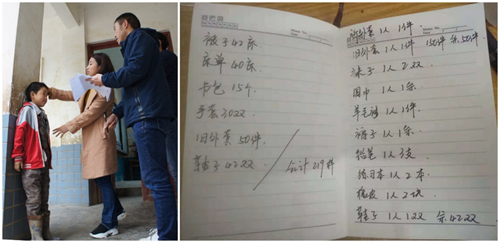 被子42床
床单40床
书包15个
手套30双
旧外套50件
鞋子42双
合计219件
外套1人1件
旧外套1人1件 150件 余50件
袜子1人2双
围巾1人1条
羊毛裤1人1件
裤子1人1条
铅笔1人3支
练习本1人2本
橡皮1人2块
鞋子1人1双 余42双